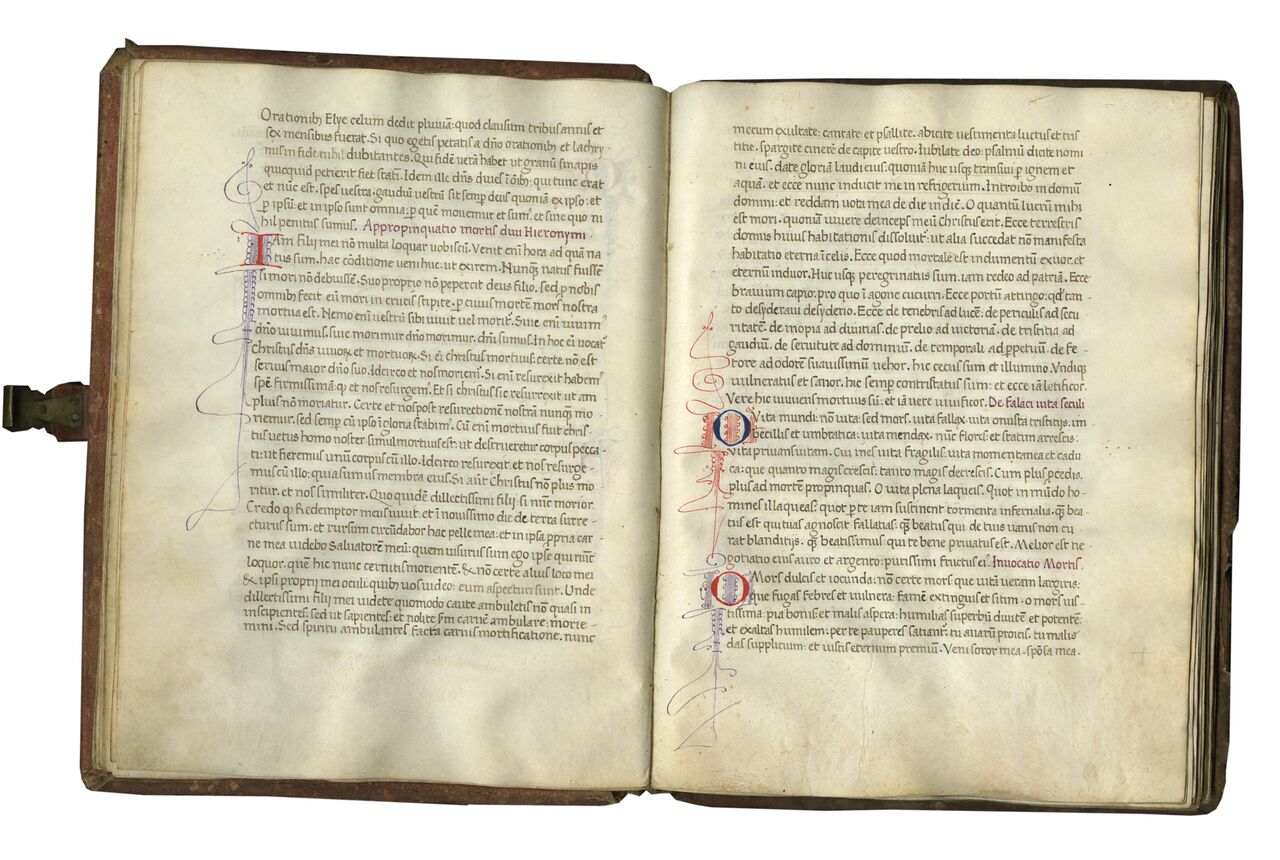 Orationib Elye celum dedit pluuiā: quod clausum tribus annis et
sex mensibus fuerat. Si quo egetis petatis a dño orationib et lachry-
mis in fide nihil dubitantes. Qui fidē uerā habet ut granū sinapis
quicquid petierit fiet statī. Idem ille dñs diues ī oīb: qui tunc erat
et nūc est. spes uestra. gaudiū uestrū sit semp deus quoniā ex ipso: et
p ipsū: et in ipso sunt omnia: p quē mouemur et sum᷒. et sine quo ni
hil penitus sumus. Appropinquatio mortis diui Hieronymi.
IAm filij mei nō multa loquar uobiscū. Venit enī hora ad quā na
tus sum. hac cōditione ueni huc: ut exirem. Nunq̄ natus fuissē
si mori nō debuissē. Suo proprio nō pepercit deus filio. sed p nobis
omnib fecit eū mori in crucis stipite. p cuius mortē mors nostra
mortua est. Nemo enī uestrū sibi uiuit uel morit᷒. Siue enī uiuim᷒
dño uiuimus. siue morimur dño morimur. dñi sumus. In hoc eī uocat᷒
Christus dñs uiuoꝝ et mortuoꝝ. Si eī christus mortuus: certe nō est
seruus maior dño suo. Idcirco et nos moriem᷒. Si enī resurexit habem᷒
spē firmissimā: q et nos resurgem᷒. Et si christus sic resurrexit ut am
plius nō moriatur. Certe et nos post resurectionē nostrā nunq̄ mo
riemur. sed semp cū ipso ī gloria stabim᷒. Cū enī mortuus fuit chris-
tus uetus homo noster simul mortuus est. ut destrueretur corpus pecca-
ti: ut fieremus unū corpus cū illo. Idcirco resurexit. et nos resurge-
mus cū illo: quia sumus membra eius. Si aūt Christus nō plus mo
ritur. et nos similiter. Quo quidē dillectissimi filij si nūc morior.
Credo q Redemptor meus uiuit: et ī nouissimo die de terra surre-
cturus sum. et rursum circūdabor hac pelle mea: et in ipsa ppria car-
ne mea uidebo Saluatorē meū: quem uisurus sum ego ipse qui nūc
loquor. quem hic nunc cernitis morientē. & nō certe alius loco mei
& ipsi proprij mei oculi: quib uos uideo: eum aspecturi sunt. Unde
dillectissimi filij mei uidete quomodo caute ambuletis nō quasi in
insipientes. sed ut sapientes: et nolite scdm carnē ambulare: morie-
mini. Sed spiritu ambulantes facta carnis mortificatione. nunc
mecum exultate: cantate et psallite. abicite uestimenta luctus et tris
titie. spargite cinerē de capite uestro. Iubilate deo: psalmū dicite nomi
ni eius. date gloriā laudi eius. quoniā huc usq transiui p ignem et
aquā. et ecce nunc inducit me in refrigeriū. Introibo in domū
domini: et reddam uota mea de die in diē. O quantū lucrū mihi
est mori. quoniā uiuere deinceps meū Christus erit. Ecce terrestris
domus huius habitationis dissoluit᷒. ut alia succedat nō manifesta
habitatio eterna ī celis. Ecce quod mortale est indumentū exuor. et
eternū induor. Huc usq peregrinatus sum. iam redeo ad patriā. Ecce
brauium capio: pro quo ī agone cucurri. Ecce portū attingo: qd tan
to desyderaui desyderio. Ecce de tenebris ad lucē: de periculis ad secu
ritatē: de inopia ad diuitias. de prelio ad uictoriā. de tristitia ad
gaudiū. de seruitute ad dominiū. de temporali ad ppetuū. de fe-
tore ad odorē suauissimū uehor. hic cecus sum et illumino. Vndiq
uulneratus et sanor. hic semp contristatus sum: et ecce iā letificor.
Vere hic uiuens mortuus sū: et iā uere uiuifico. De falaci uita seculi
O Vita mundi: nō uita: sed mors. uita fallax. uita onusta tristitijs. im
becillis et umbratica: uita mendax. nūc flores: et statim arrescis.
Vita priuans uitam. Cui ines uita fragilis. uita momentanea et cadu
ca: que quanto magis crescis: tanto magis decrescis. Cum plus pcedis.
plus ad mortē propinquas. O uita plena laqueis. Quot in mūdo ho-
mines illaqueas: quot p te iam sustinent tormenta infernalia. q̄ bea
tus est qui tuas agnoscit fallatias: q̄ beatus qui de tuis uanis non cu
rat blanditijs. q̄ beatissimus qui te bene priuatus est. Melior est ne-
gotiatio eius auro et argento: purissimi fructus ei᷒. Inuocatio Mortis.
O Mors dulcis et iocunda: nō certe mors que uitā ueram largiris:
que fugas febres et uulnera: famē extinguis et sitim. o mors ius-
tissima: pia bonis: et malis aspera: humilias superbū diuitē et potentē:
et exaltas humilem: per te pauperes satiant᷒: tu auarū proicis. tu malis
das supplicium: et iustis eternum premiū. Veni soror mea. spōsa mea.